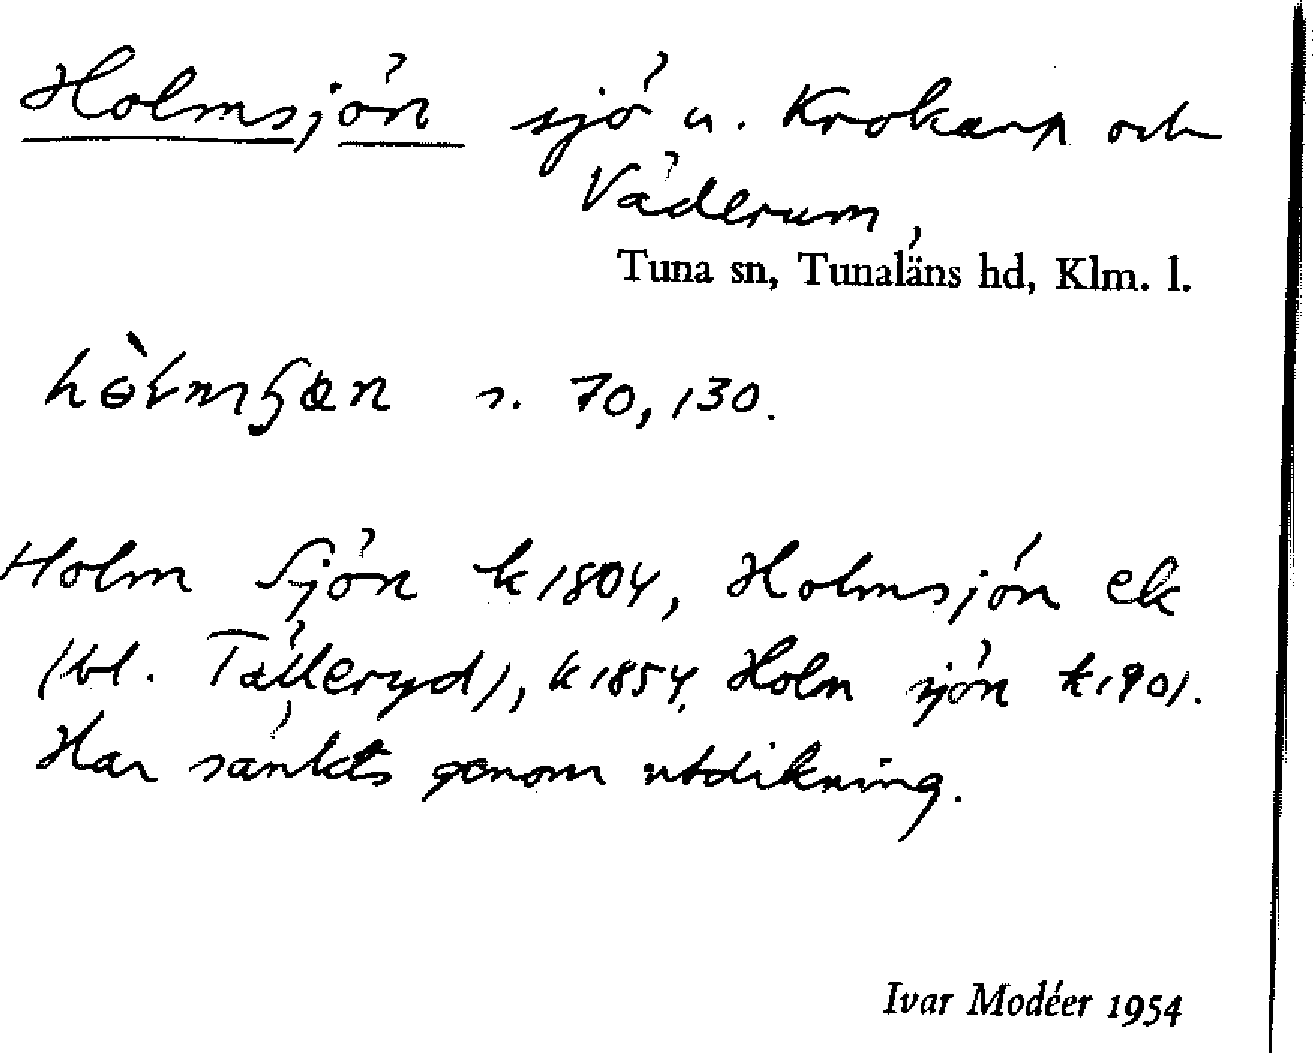 Holmsjön sjö u. Krokarp och
Väderum,
Tuna sn, Tunaläns hd, Klm. l.
s. 70, 130.
Holm Sjön k 1804, Holmsjön ek
(bl. Tälleryd), k 1854, Holm sjön k 1901.
Har sänkts genom utdikning.
Ivar Modéer 1954